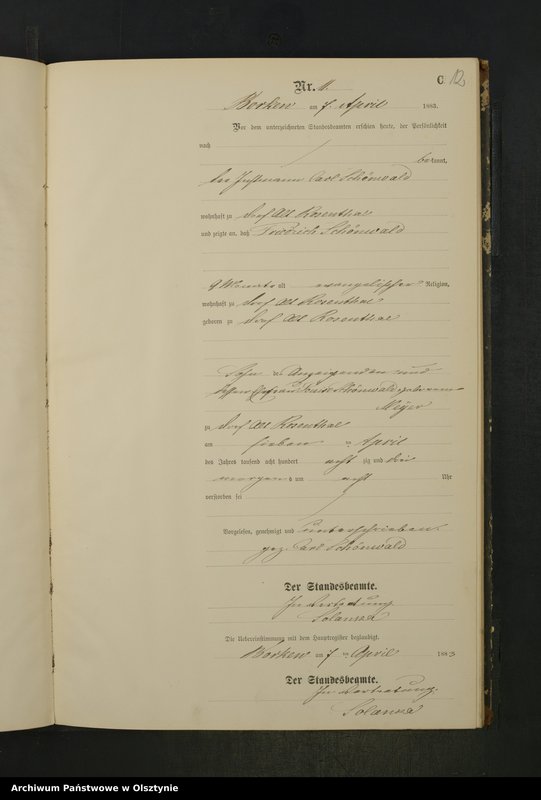 C. 12
Nr. 11.
Borken am 7. April 1883.
Vor dem unterzeichneten Standesbeamten erschien heute, der Persönlichkeit
nach
bekannt,
der Carl Schönwald
wohnhaft zu Dorf Alt Rosenthal
und zeigte an, daß Friedrich Schönwald
9 Monate alt evangelischer Religion,
wohnhaft zu Dorf Alt Rosenthal
geboren zu Dorf Alt Rosenthal
Sohn des Anzeigenden und
dessen Ehefrau Schönwald
Meyer
zu Dorf Alt Rosenthal
am sieben ten April
des Jahres tausend acht hundert acht zig und drei
morgens um acht Uhr
verstorben sei
Vorgelesen, genehmigt und unterschrieben.
gez. Carl Schönwald
Der Standesbeamte.
In Vertretung
Die Uebereinstimmung mit dem Hauptregister beglaubigt.
Borken am 7 ten April 1883
Der Standesbeamte.
In Vertretung.
Archiwum Państwowe w Olsztynie